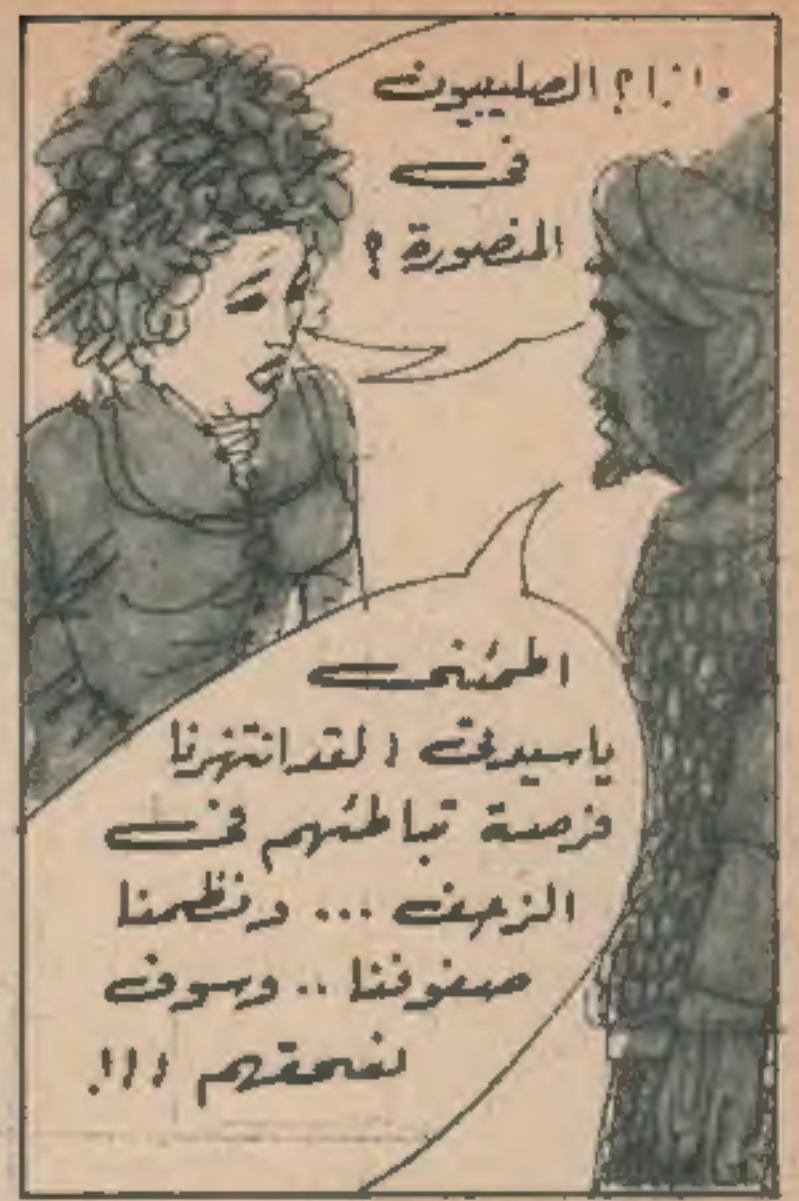 ماذا؟ الصليبيون
فى
المنصورة ؟
اطمئنى
ياسيدتى ! لقد انتهزنا
فرصة تباطئهم فى
الزحف ... ونظمنا
صفوفنا .. وسوف
نسحقهم !!!.